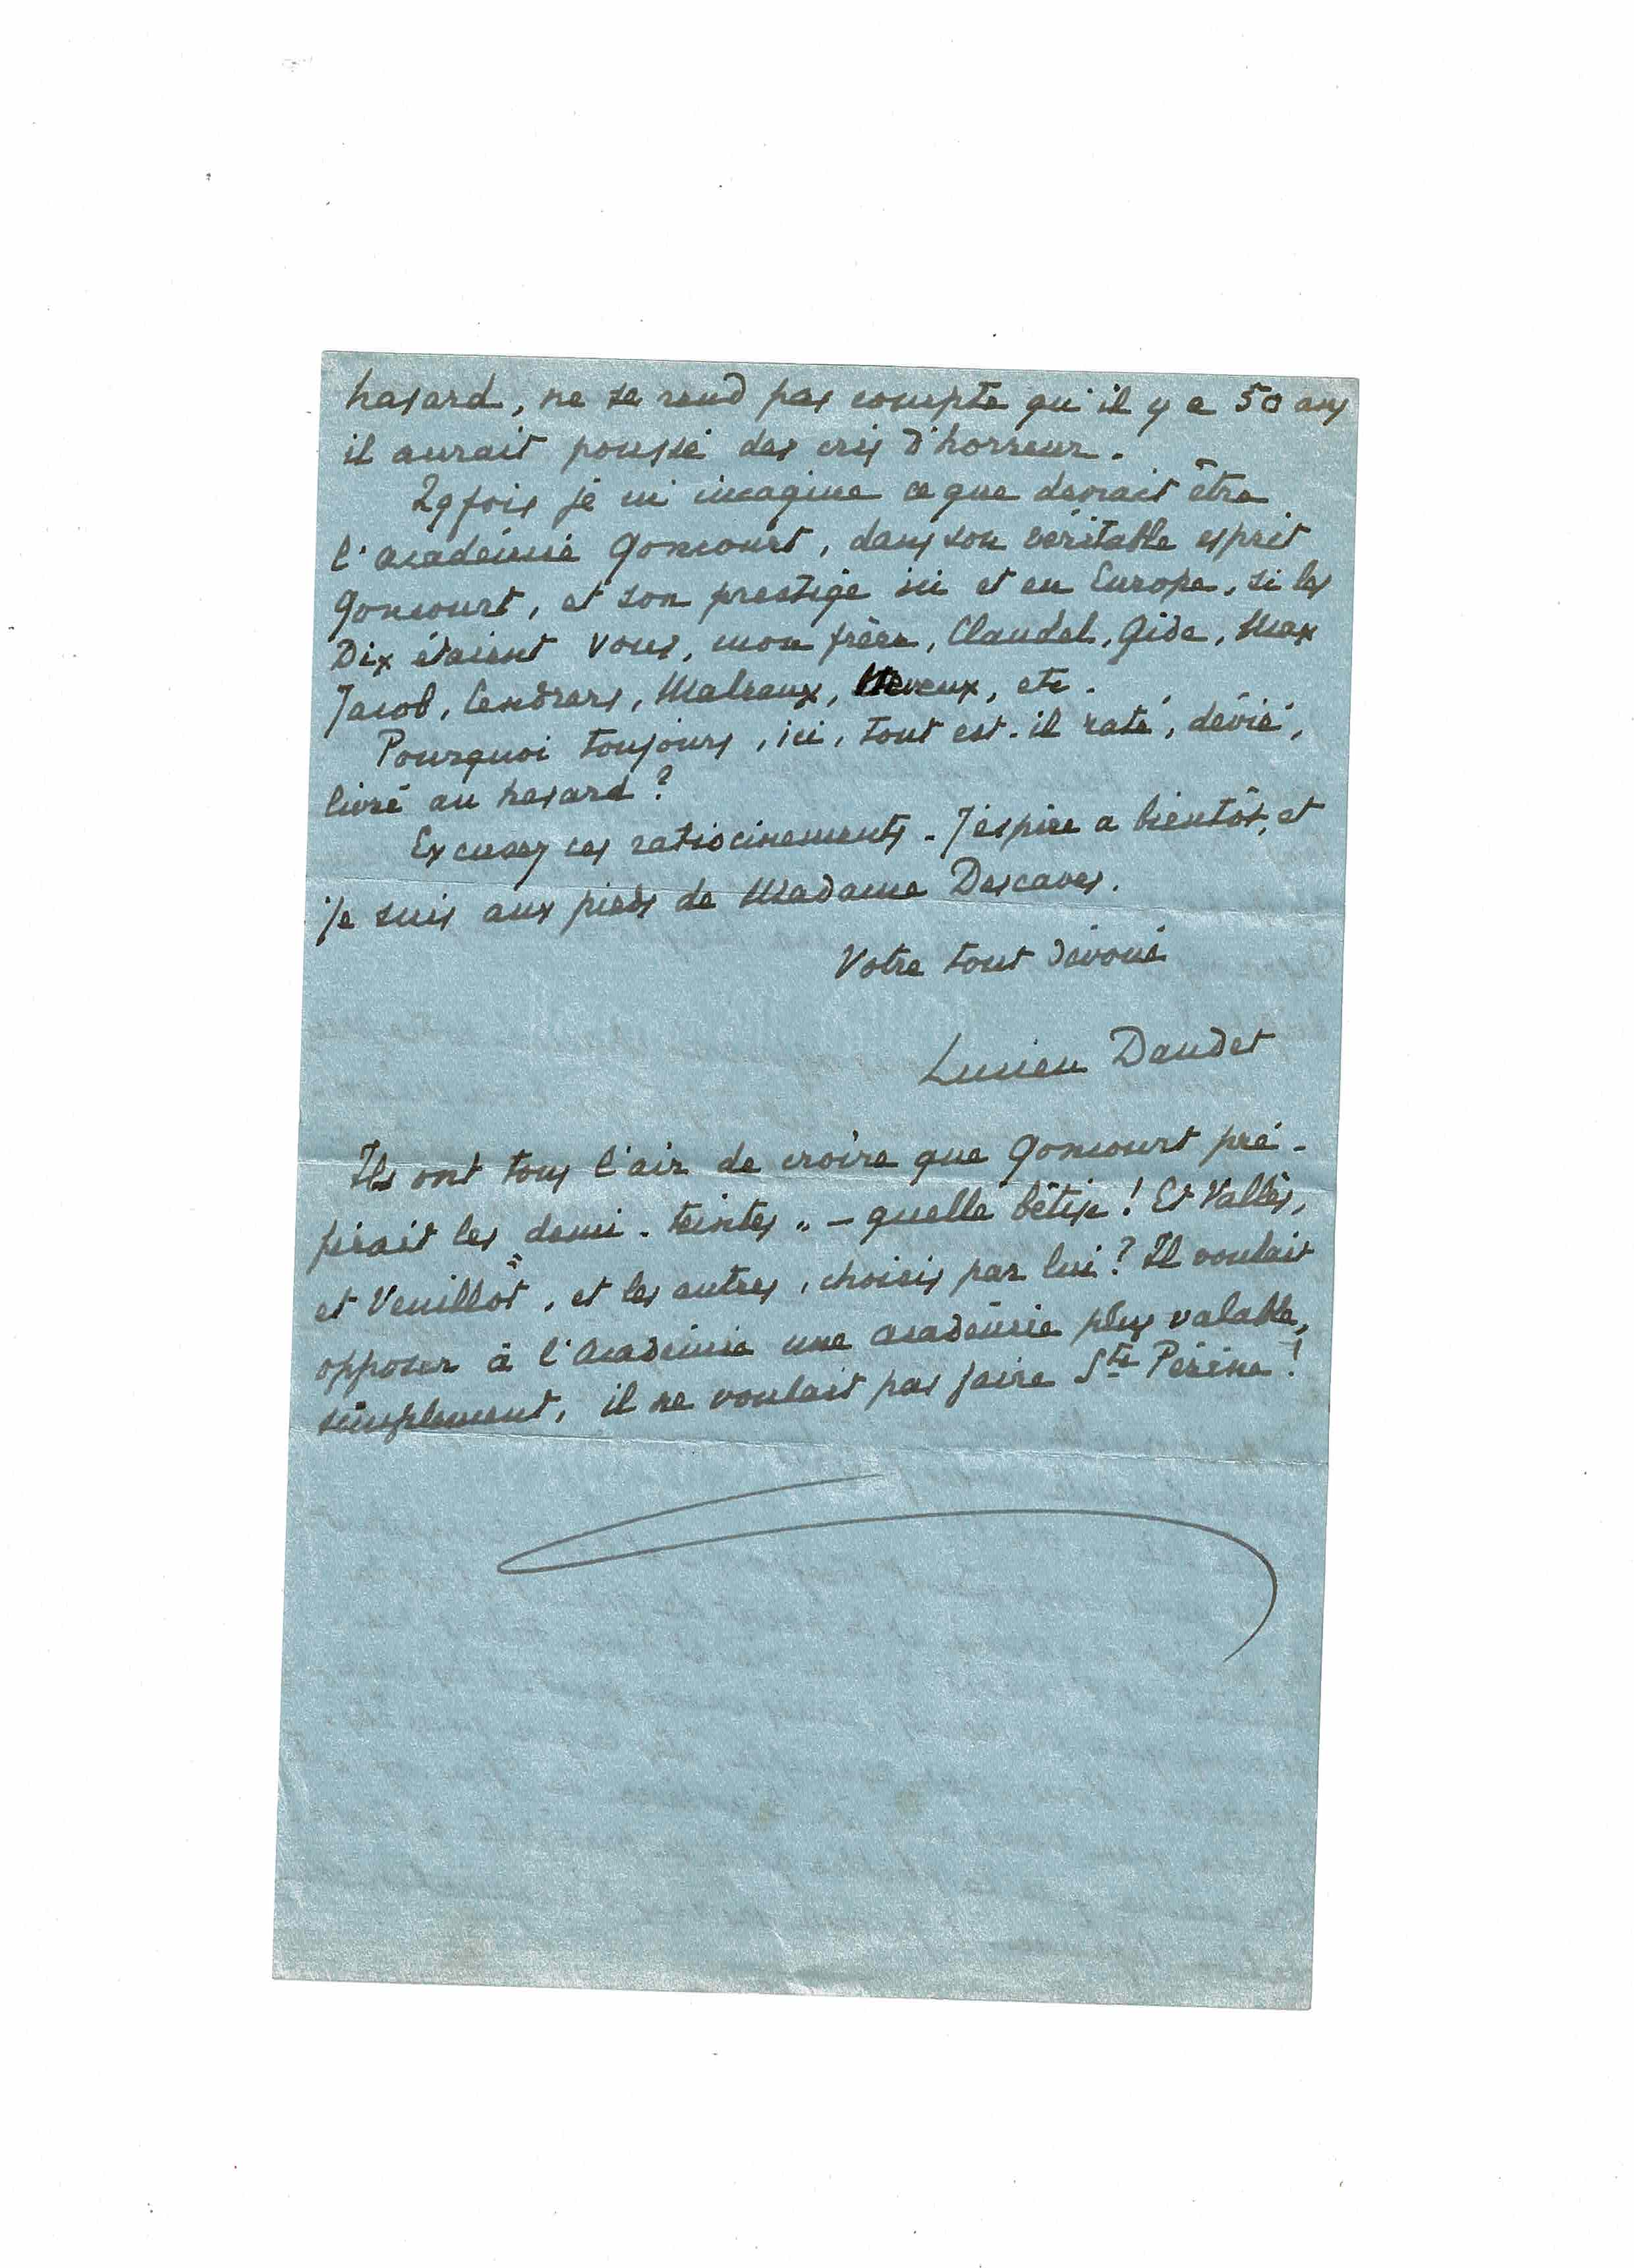 hasard, ne se rend pas compte qu'il y a 50 ans
il aurait poussé des cris d'horreur.
Qq fois je m'imagine ce que devrait être
l'académie Goncourt, dans son véritable esprit
Goncourt, et son prestige ici et en Europe, si les
Dix étaient vous, mon frère, Claudel, Gide, Max
Jacob, Cendrars, Malraux, etc.
Pourquoi toujours, ici, tout est-il raté, dévié,
livré au hasard?
Excusez ces ratiocinements. J'espère a bientôt, et
je suis aux pieds de Madame Descaves.
Votre tout dévoué
Lucien Daudet
Ils ont tous l'air de croire que Goncourt pré-
férait les demi-teintes" - quelle bêtise! Et Vallès,
et Veuillot, et les autres, choisis par lui? Il voulait
opposer à l'Académie une académie plus valable,
simplement, il ne voulait pas faire Ste Périne!